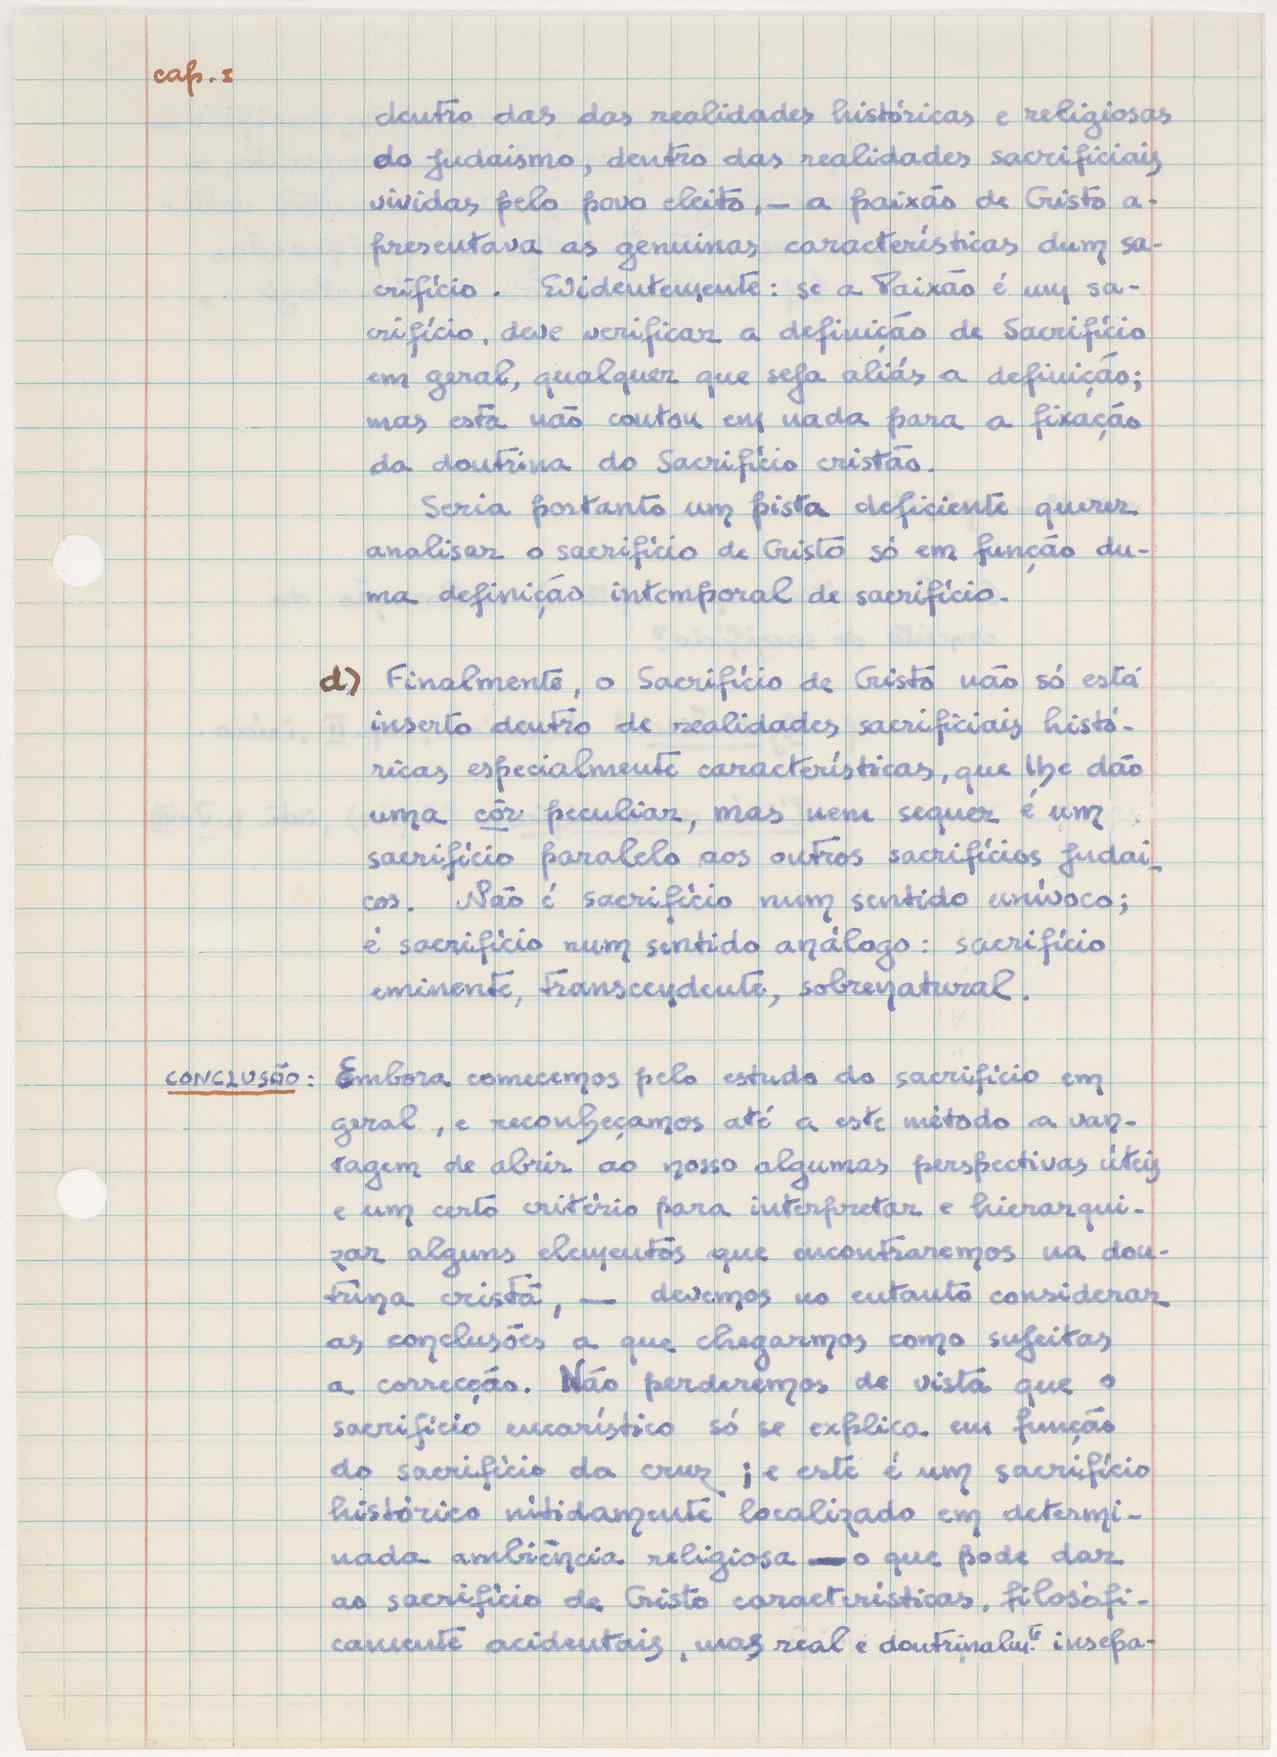 cap. I
dentro das das realidades históricas e religiosas
do Judaismo, dentro das realidades sacrificiais
vividas pelo povo eleito, — a paixão de Cristo a-
presentava as genuinas características dum sa-
crifício. Evidentemente: se a Paixão é um sa-
crifício, deve verificar a definição de Sacrifício
em geral, qualquer que seja aliás a definição;
mas esta não contou em nada para a fixação
da doutrina do Sacrifício cristão.
Seria portanto um pista deficiente querer
analisar o sacrifício de Cristo só em função du-
ma definição intemporal de sacrifício.
d) Finalmente, o Sacrifício de Cristo não só está
inserto dentro de realidades sacrificiais histó-
ricas especialmente características, que lhe dão
uma côr peculiar, mas nem sequer é um
sacrifício paralelo aos outros sacrifícios judai-
cos. Não é sacrifício num sentido unívoco;
é sacrifício num sentido análogo: sacrifício
eminente, transcendente, sobrenatural.
CONCLUSÃO: Embora comecemos pelo estudo do sacrifício em
geral, e reconheçamos até a este método a van-
tagem de abrir ao nosso algumas perspectivas úteis
e um certo critério para interpretar e hierarqui-
zar alguns elementos que encontraremos na dou-
trina cristã, — devemos no entanto considerar
as conclusões a que chegarmos como sujeitas
a correcção. Não perderemos de vista que o
sacrifício eucarístico só se explica em função
do sacrifício da cruz; e este é um sacrifício
histórico nitidamente localizado em determi-
nada ambiência religiosa — o que pode dar
ao sacrifício de Cristo características, filosófi-
camente acidentais, mas real e doutrinalm.te insepa-